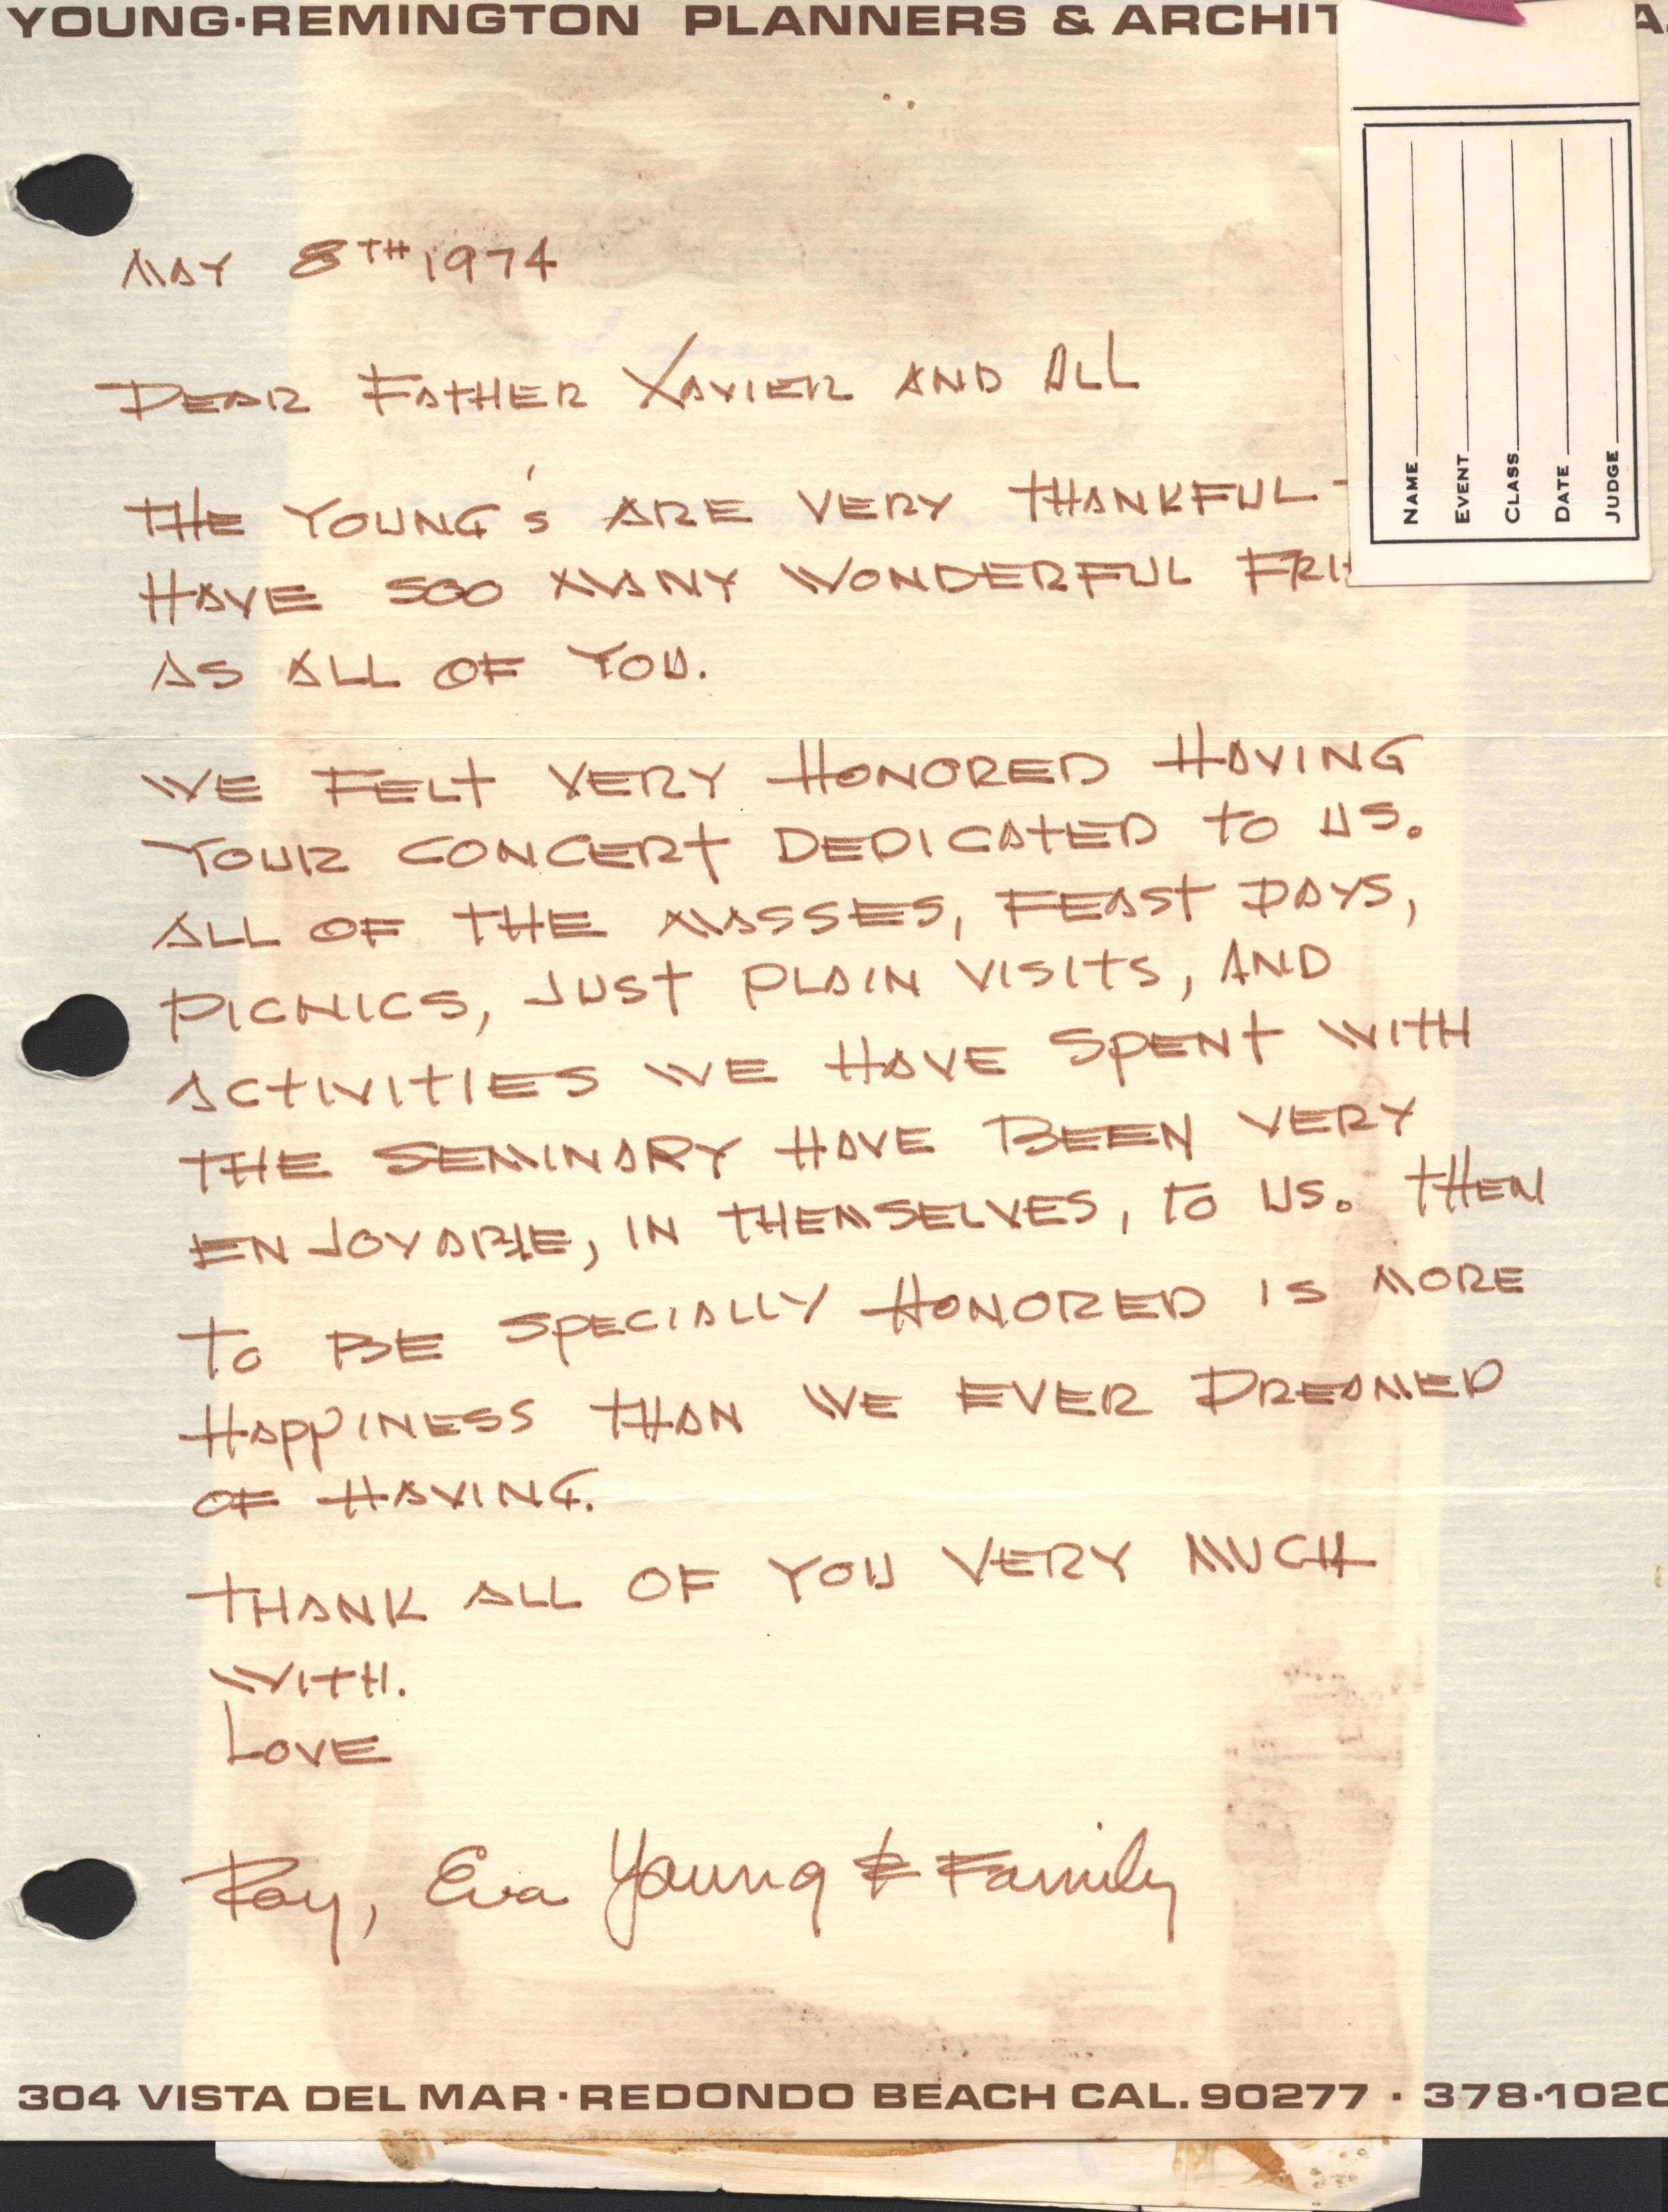 YOUNG·REMINGTON PLANNERS & ARCHIT
MAY 8TH 1974
DEAR FATHER XAVIER AND ALL
THE YOUNG's ARE VERY THANKFUL
HAVE SOO MANY WONDERFUL FRI
AS ALL OF YOU.
WE FELT VERY HONORED HAVING
YOUR CONCERT DEDICATED TO US.
ALL OF THE MASSES, FEAST DAYS,
PICNICS, JUST PLAIN VISITS, AND
ACTIVITIES WE HAVE SPENT WITH
THE SEMINARY HAVE BEEN VERY
ENJOYABLE, IN THEMSELVES, TO US. THEN
TO BE SPECIALLY HONORED IS MORE
HAPPINESS THAN WE EVER DREAMED
OF HAVING.
THANK ALL OF YOU VERY MUCH
WITH.
LOVE
Roy, Eva Young & Family
304 VISTA DEL MAR · REDONDO BEACH CAL. 90277 · 378·1020
NAME
EVENT
CLASS
DATE
JUDGE